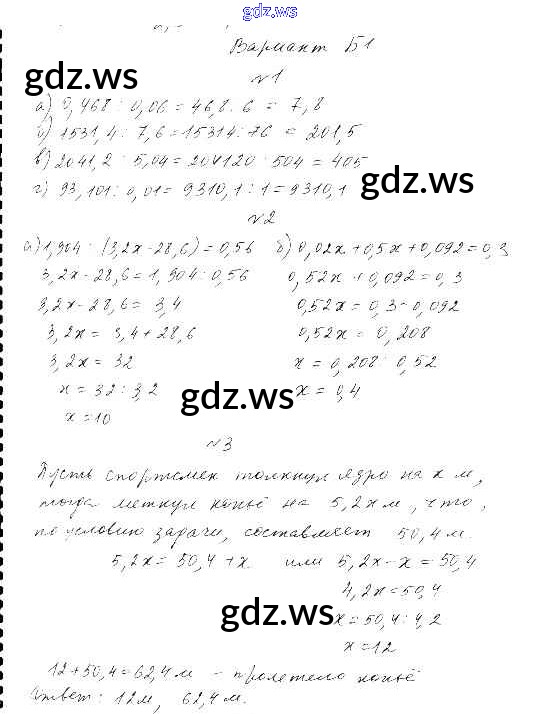 gdz.ws
Вариант Б1
gdz.ws
№1
а) 0,468 : 0,06 = 46,8 : 6 = 7,8
б) 1531,4 : 7,6 = 15314 : 76 = 201,5
в) 2041,2 : 5,04 = 204120 : 504 = 405
г) 93,101 : 0,01 = 9310,1 : 1 = 9310,1
gdz.ws
№2
а) 1,904 : (3,2x - 28,6) = 0,56 б) 0,02x + 0,5x + 0,092 = 0,3
3,2x - 28,6 = 1,904 : 0,56 0,52x + 0,092 = 0,3
3,2x - 28,6 = 3,4 0,52x = 0,3 - 0,092
3,2x = 3,4 + 28,6 0,52x = 0,208
3,2x = 32 x = 0,208 : 0,52
x = 32 : 3,2 x = 0,4
gdz.ws
x = 10
№3
Пусть спортсмен толкнул ядро на x м,
тогда метнул копьё на 5,2x м, что,
по условию задачи, составляет 50,4 м.
5,2x = 50,4 + x или 5,2x - x = 50,4
4,2x = 50,4
gdz.ws
x = 50,4 : 4,2
x = 12
12 + 50,4 = 62,4 м - пролетело копьё
Ответ: 12 м, 62,4 м.
gdz.ws